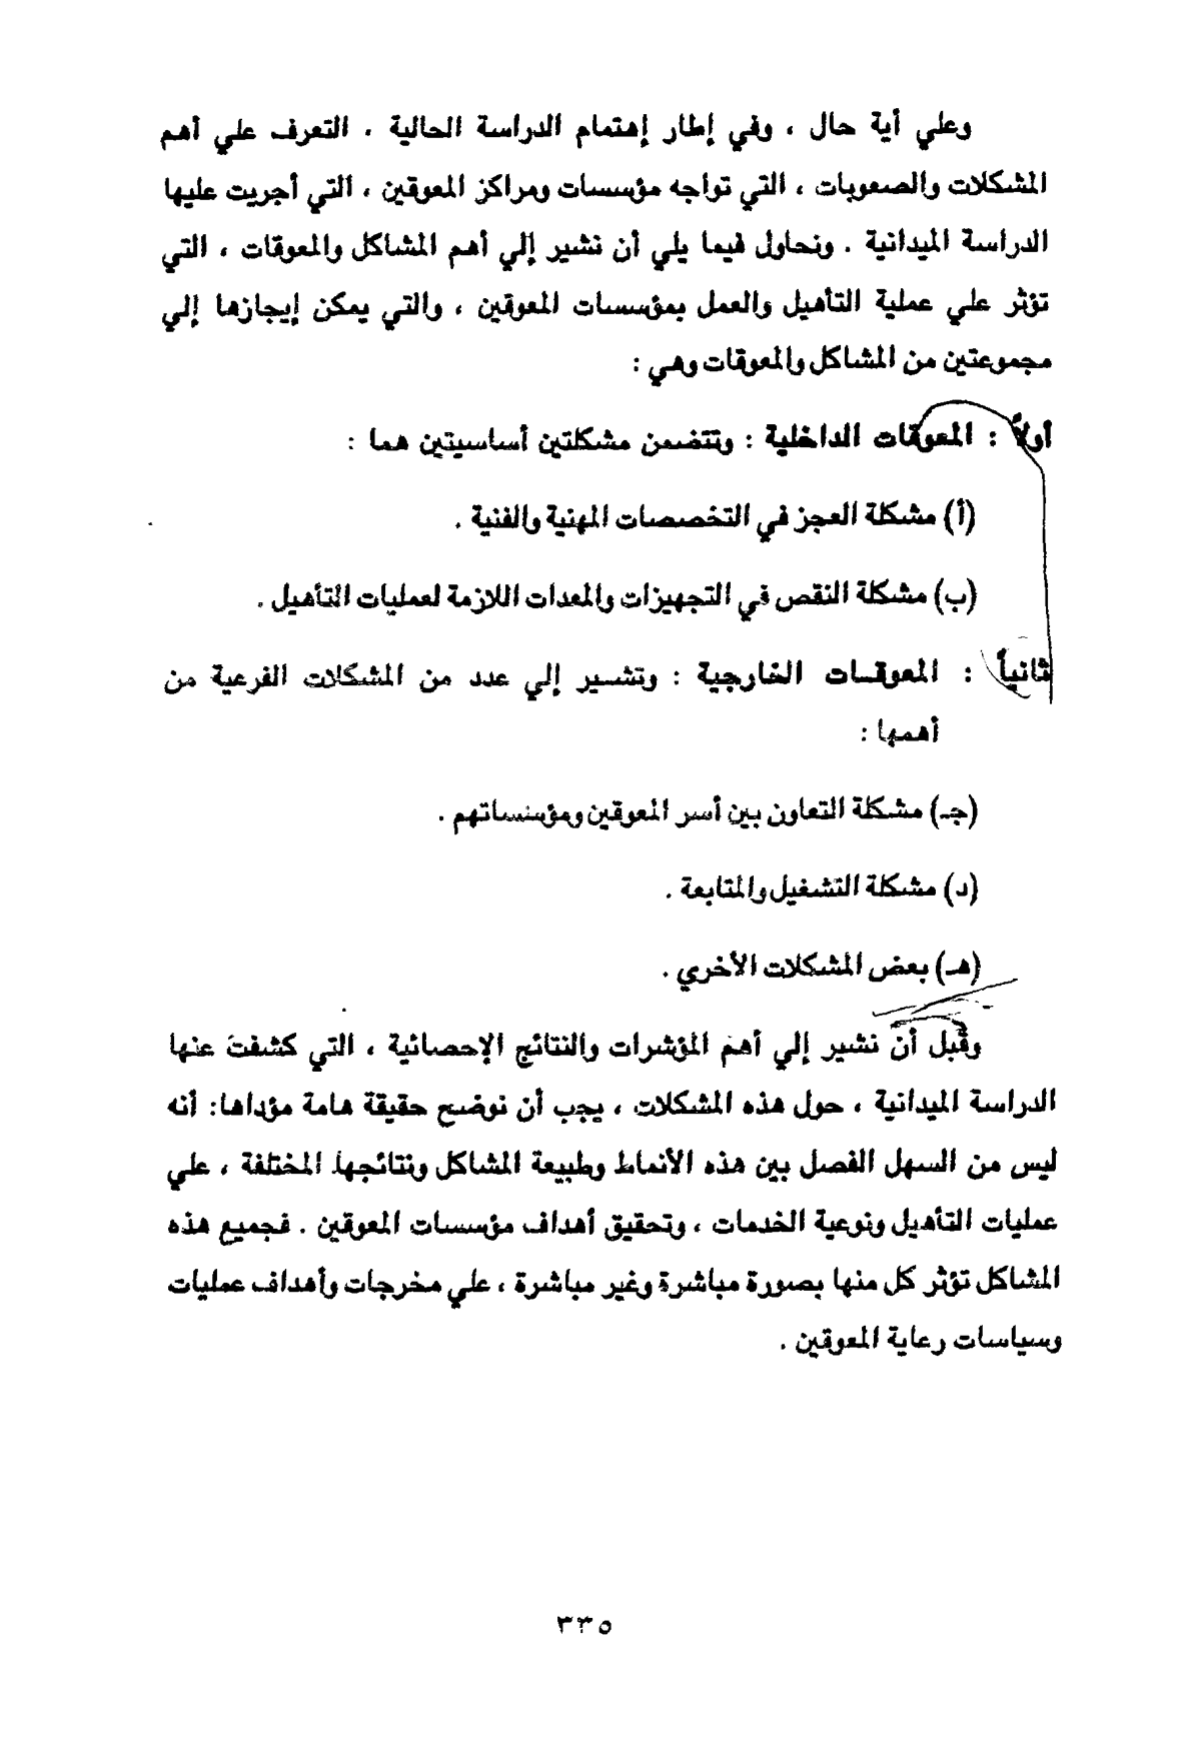 وعلي أية حال ، وفي إطار إهتمام الدراسة الحالية ، التعرف علي أهم
المشكلات والصعوبات ، التي تواجه مؤسسات ومراكز المعوقين ، التي أجريت عليها
الدراسة الميدانية . ونحاول فيما يلي أن نشير إلي أهم المشاكل والمعوقات ، التي
تؤثر علي عملية التأهيل والعمل بمؤسسات المعوقين ، والتي يمكن إيجازها إلي
مجموعتين من المشاكل والمعوقات وهي :
أولاً : المعوقات الداخلية : وتتضمن مشكلتين أساسيتين هما :
(أ) مشكلة العجز في التخصصات المهنية والفنية .
(ب) مشكلة النقص في التجهيزات والمعدات اللازمة لعمليات التأهيل .
ثانياً : المعوقات الخارجية : وتشير إلي عدد من المشكلات الفرعية من
أهمها :
(جـ) مشكلة التعاون بين أسر المعوقين ومؤسساتهم .
(د) مشكلة التشغيل والمتابعة .
(هـ) بعض المشكلات الأخري .
وقبل أن نشير إلي أهم المؤشرات والنتائج الإحصائية ، التي كشفت عنها
الدراسة الميدانية ، حول هذه المشكلات ، يجب أن نوضح حقيقة هامة مؤداها: أنه
ليس من السهل الفصل بين هذه الأنماط وطبيعة المشاكل ونتائجها المختلفة ، علي
عمليات التأهيل ونوعية الخدمات ، وتحقيق أهداف مؤسسات المعوقين . فجميع هذه
المشاكل تؤثر كل منها بصورة مباشرة وغير مباشرة ، علي مخرجات وأهداف عمليات
وسياسات رعاية المعوقين .
٣٣٥